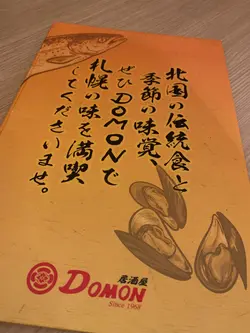 北国の伝統食と
季節の味覚、
ぜひDOMONで
札幌の味を満喫
してくださいませ。
居酒屋
DOMON
Since 1968